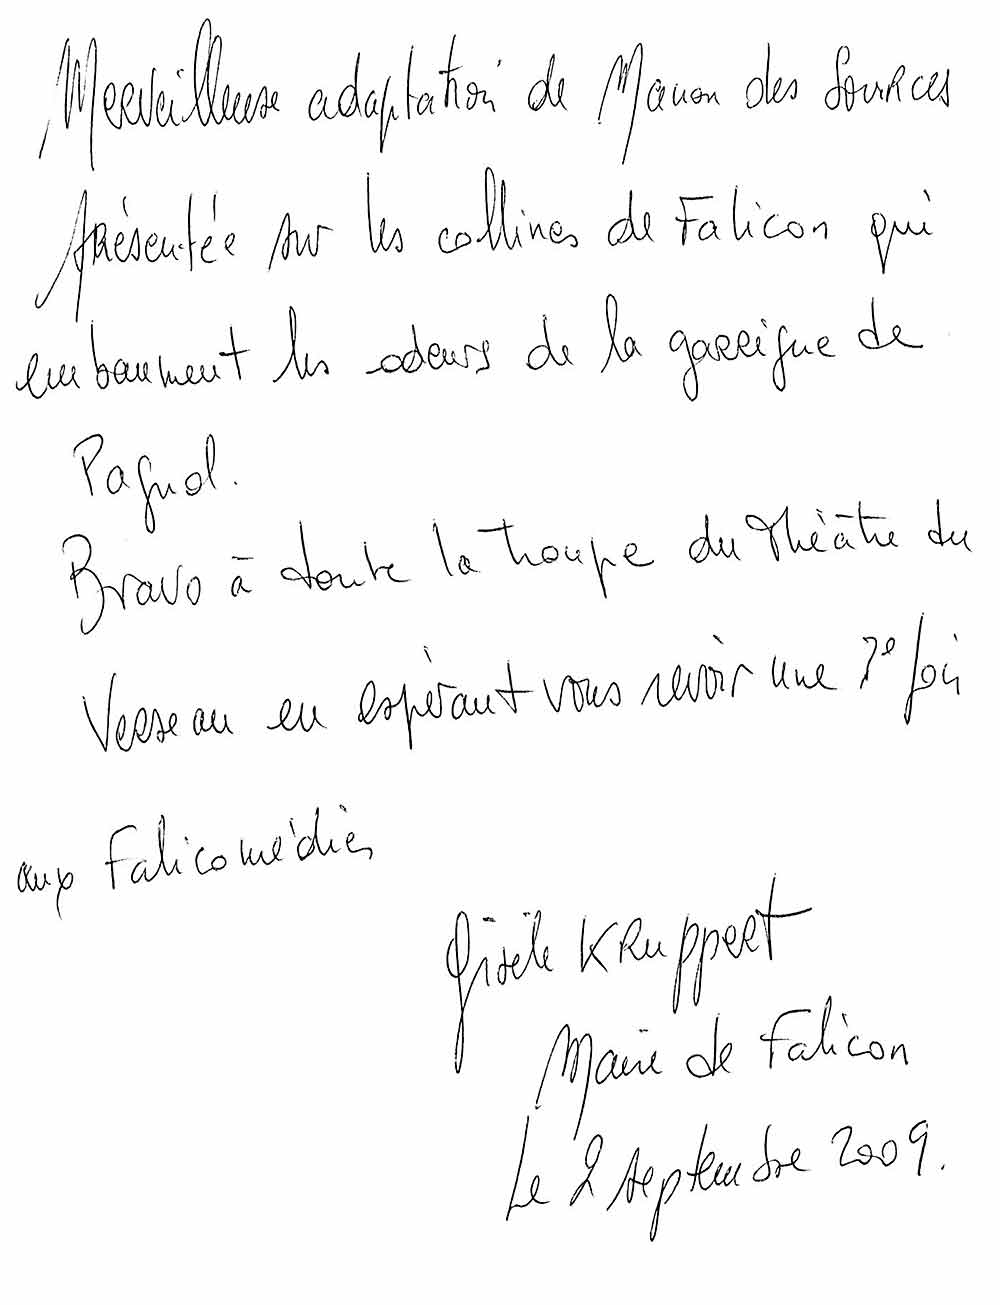 Merveilleuse adaptation de Manon des Sources
présentée sur les collines de Falicon qui
embaument les odeurs de la garrigue de
Pagnol.
Bravo à toute la troupe du Théâtre du
Verseau en espérant vous revoir une 3e fois
aux Falicomédies
Gisèle KRuppert
Maire de Falicon
Le 2 septembre 2009.